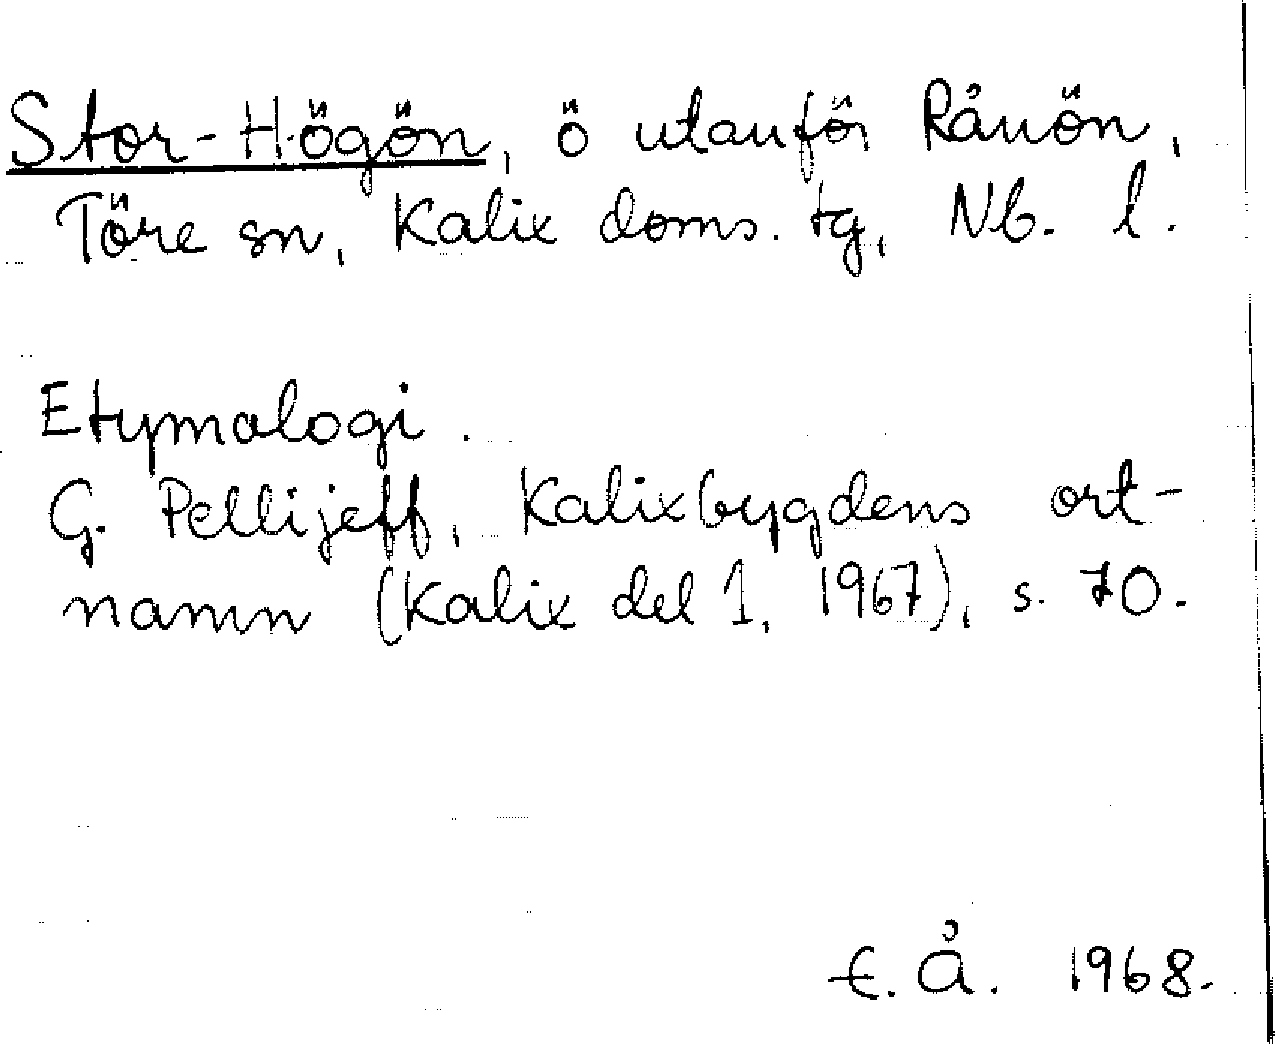 Stor-Högön, ö utanför Rånön,
Töre sn, Kalix doms. tg, Nb. l.
Etymologi.
G. Pellijeff, Kalixbygdens ort-
namn (Kalix del 1, 1967), s. 70.
E. Å. 1968.